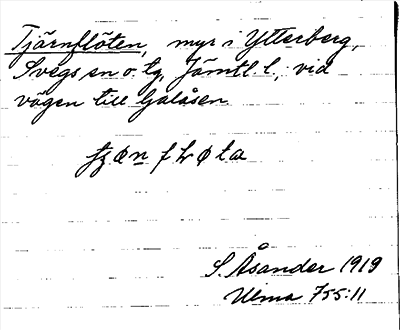 Tjärnflöten, myr i Ytterberg,
Svegs sn o. tg, Jämtl. l.; vid
vägen till Galåsen
S. Åsander 1919
Ulma 755:11